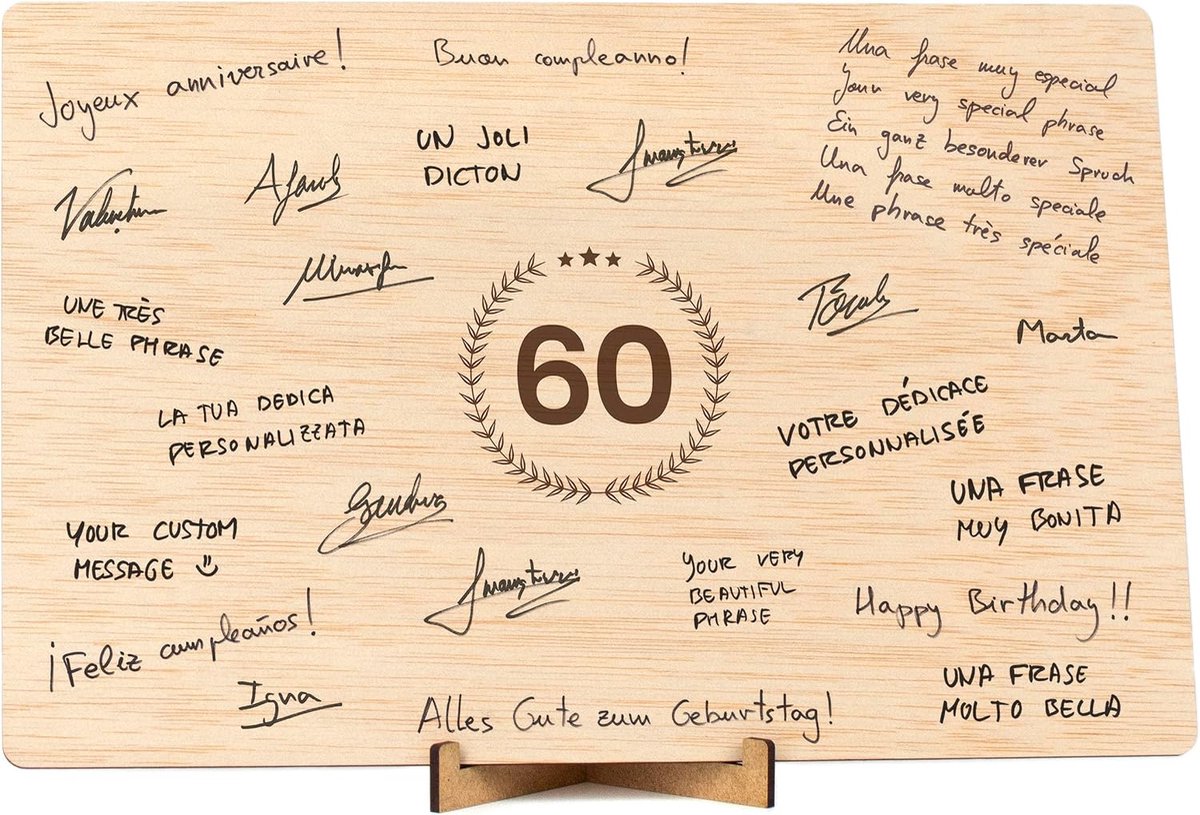 Joyeux anniversaire!
Buon compleanno!
Una frase muy especial
Your very special phrase
Ein ganz besonderer Spruch
Una frase molto speciale
Une phrase très spéciale
UN JOLI
DICTON
UNE TRÈS
BELLE PHRASE
60
Marta
LA TUA DEDICA
PERSONALIZZATA
VOTRE DÉDICACE
PERSONNALISÉE
UNA FRASE
MUY BONITA
YOUR CUSTOM
MESSAGE
YOUR VERY
BEAUTIFUL
PHRASE
Happy Birthday!!
¡Feliz cumpleaños!
Igna
UNA FRASE
MOLTO BELLA
Alles Gute zum Geburtstag!